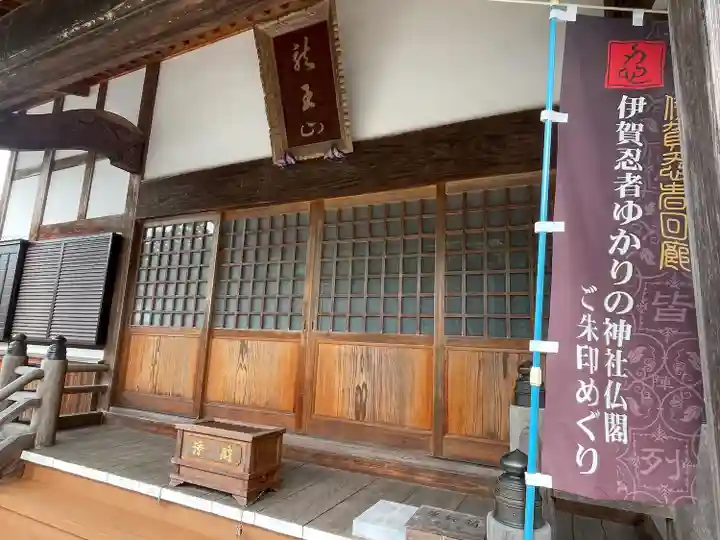 龍王山
伊賀忍者回廊
伊賀忍者ゆかりの神社仏閣
ご朱印めぐり
皆
陣
列
浄財